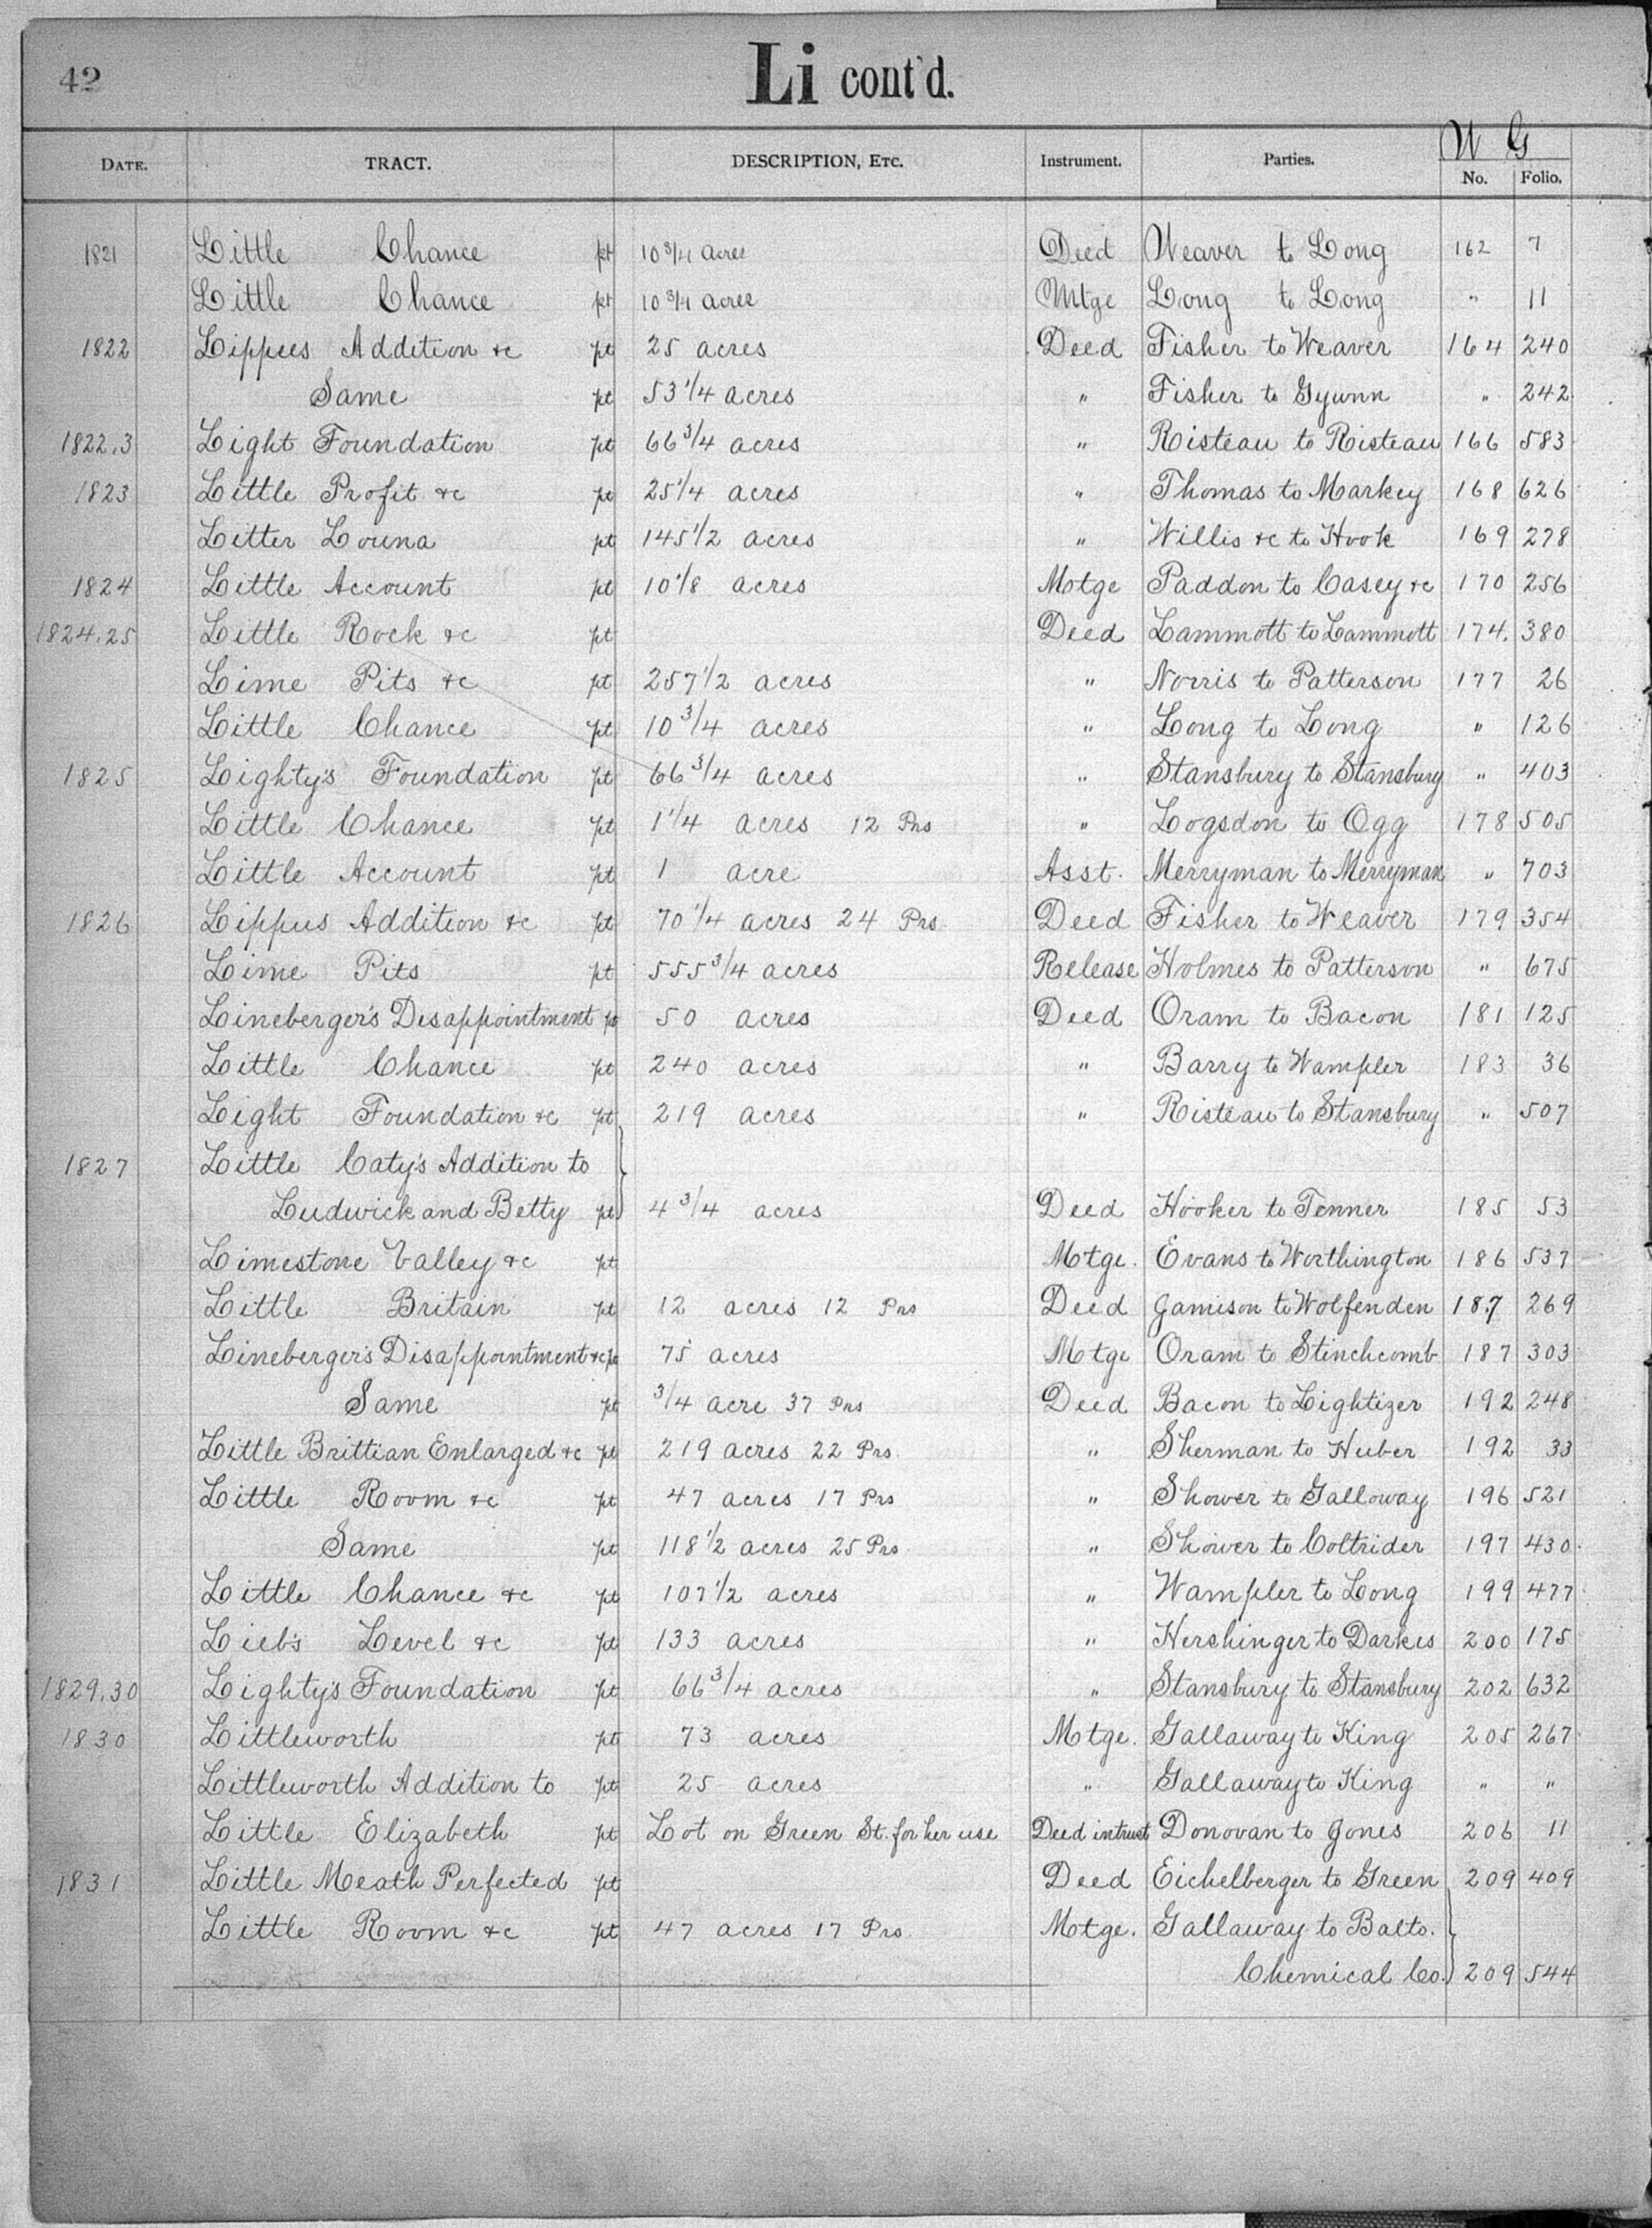 42 Li cont'd.
W G
DATE. TRACT. DESCRIPTION, ETC. Instrument. Parties. No. Folio.
1821 Little Chance pt 10 3/4 acres Deed Weaver to Long 162 7
Little Chance pt 10 3/4 acres Mtge Long to Long " 11
1822 Lippees Addition &c pt 25 acres Deed Fisher to Weaver 164 240
Same pt 53 1/4 acres " Fisher to Gyunn " 242
1822.3 Light Foundation pt 66 3/4 acres " Risteau to Risteau 166 583
1823 Little Profit &c pt 25 1/4 acres " Thomas to Markey 168 626
Litter Louna pt 145 1/2 acres " Willis &c to Hook 169 278
1824 Little Account pt 10 1/8 acres Motge Paddon to Casey &c 170 256
1824.25 Little Rock &c pt Deed Lammott to Lammott 174. 380
Lime Pits &c pt 257 1/2 acres " Norris to Patterson 177 26
Little Chance pt 10 3/4 acres " Long to Long " 126
1825 Lighty's Foundation pt 66 3/4 acres " Stansbury to Stansbury " 403
Little Chance pt 1 1/4 acres 12 Prs " Logsdon to Ogg 178 505
Little Account pt 1 acre Asst. Merryman to Merryman " 703
1826 Lippus Addition &c pt 70 1/4 acres 24 Prs Deed Fisher to Weaver 179 354
Lime Pits pt 555 3/4 acres Release Holmes to Patterson " 675
Lineberger's Disappointment pt 50 acres Deed Oram to Bacon 181 125
Little Chance pt 240 acres " Barry to Wampler 183 36
Light Foundation &c pt 219 acres " Risteau to Stansbury " 507
1827 Little Caty's Addition to
Ludwick and Betty pt 4 3/4 acres Deed Hooker to Tenner 185 53
Limestone Valley &c pt Motge. Evans to Worthington 186 537
Little Britain pt 12 acres 12 Prs Deed Jamison to Wolfenden 187 269
Lineberger's Disappointment &c pt 75 acres Motge Oram to Stinchcomb 187 303
Same pt 3/4 acre 37 Prs Deed Bacon to Lightizer 192 248
Little Brittian Enlarged &c pt 219 acres 22 Prs " Sherman to Huber 192 33
Little Room &c pt 47 acres 17 Prs " Shower to Galloway 196 521
Same pt 118 1/2 acres 25 Prs " Shower to Coltrider 197 430
Little Chance &c pt 107 1/2 acres " Wampler to Long 199 477
Lieb's Level &c pt 133 acres " Hershinger to Darkes 200 175
1829.30 Lighty's Foundation pt 66 3/4 acres " Stansbury to Stansbury 202 632
1830 Littleworth pt 73 acres Motge. Gallaway to King 205 267
Littleworth Addition to pt 25 acres " Gallaway to King " "
Little Elizabeth pt Lot on Green St. for her use Deed in trust Donovan to Jones 206 11
1831 Little Meath Perfected pt Deed Eichelberger to Green 209 409
Little Room &c pt 47 acres 17 Prs Motge. Gallaway to Balto.
Chemical Co. 209 544